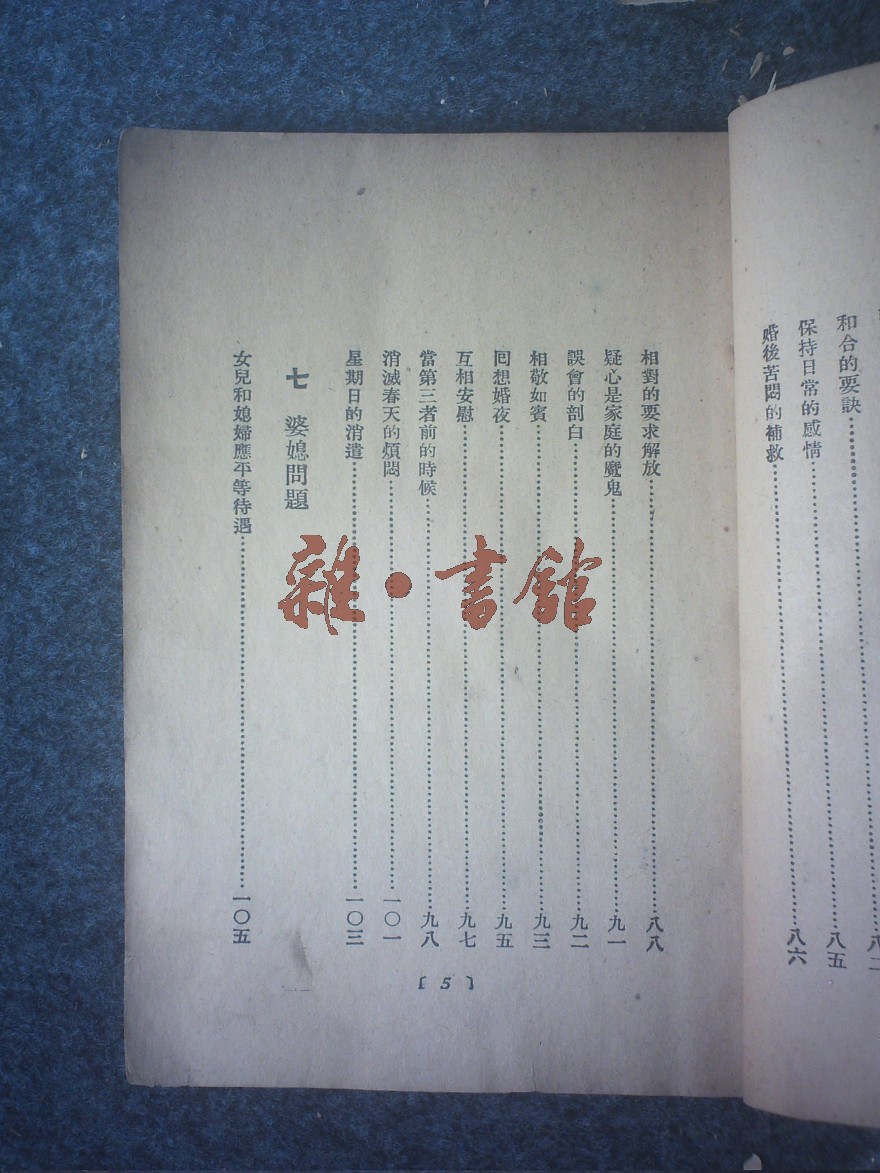 和合的要訣……八五
保持日常的感情……八五
婚後苦悶的補救……八六
相對的要求解放……八八
疑心是家庭的魔鬼……九一
誤會的剖白……九二
相敬如賓……九三
回想婚夜……九五
互相安慰……九七
當第三者前的時候……九八
消滅春天的煩悶……一〇一
星期日的消遣……一〇三
七 婆媳問題
女兒和媳婦應平等待遇……一〇五
〔5〕
雜·書館